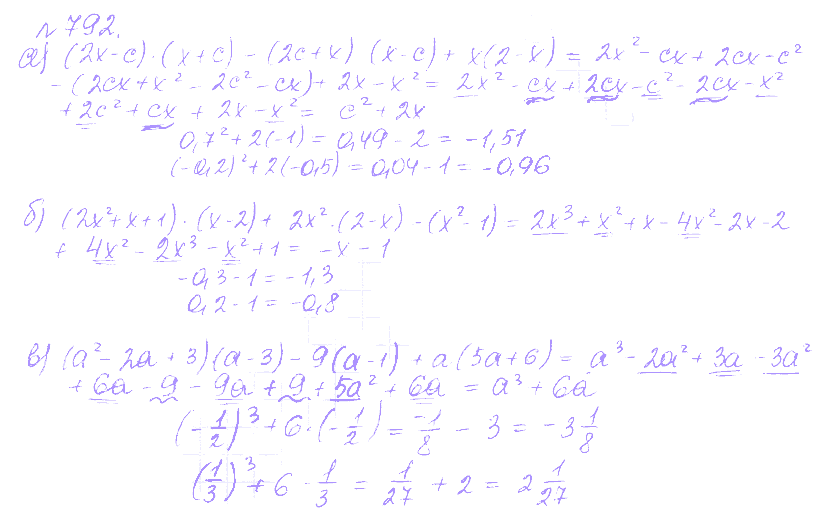 № 792.
а) (2x-c)·(x+c) - (2c+x) (x-c) + x(2-x) = 2x² - cx + 2cx - c²
- (2cx + x² - 2c² - cx) + 2x - x² = 2x² - cx + 2cx - c² - 2cx - x²
+ 2c² + cx + 2x - x² = c² + 2x
0,7² + 2(-1) = 0,49 - 2 = -1,51
(-0,2)² + 2(-0,5) = 0,04 - 1 = -0,96
б) (2x² + x + 1)·(x-2) + 2x²·(2-x) - (x²-1) = 2x³ + x² + x - 4x² - 2x - 2
+ 4x² - 2x³ - x² + 1 = -x - 1
-0,3 - 1 = -1,3
0,2 - 1 = -0,8
в) (a² - 2a + 3)(a-3) - 9(a-1) + a(5a+6) = a³ - 2a² + 3a - 3a²
+ 6a - 9 - 9a + 9 + 5a² + 6a = a³ + 6a
(-1/2)³ + 6·(-1/2) = -1/8 - 3 = -3 1/8
(1/3)³ + 6 · 1/3 = 1/27 + 2 = 2 1/27